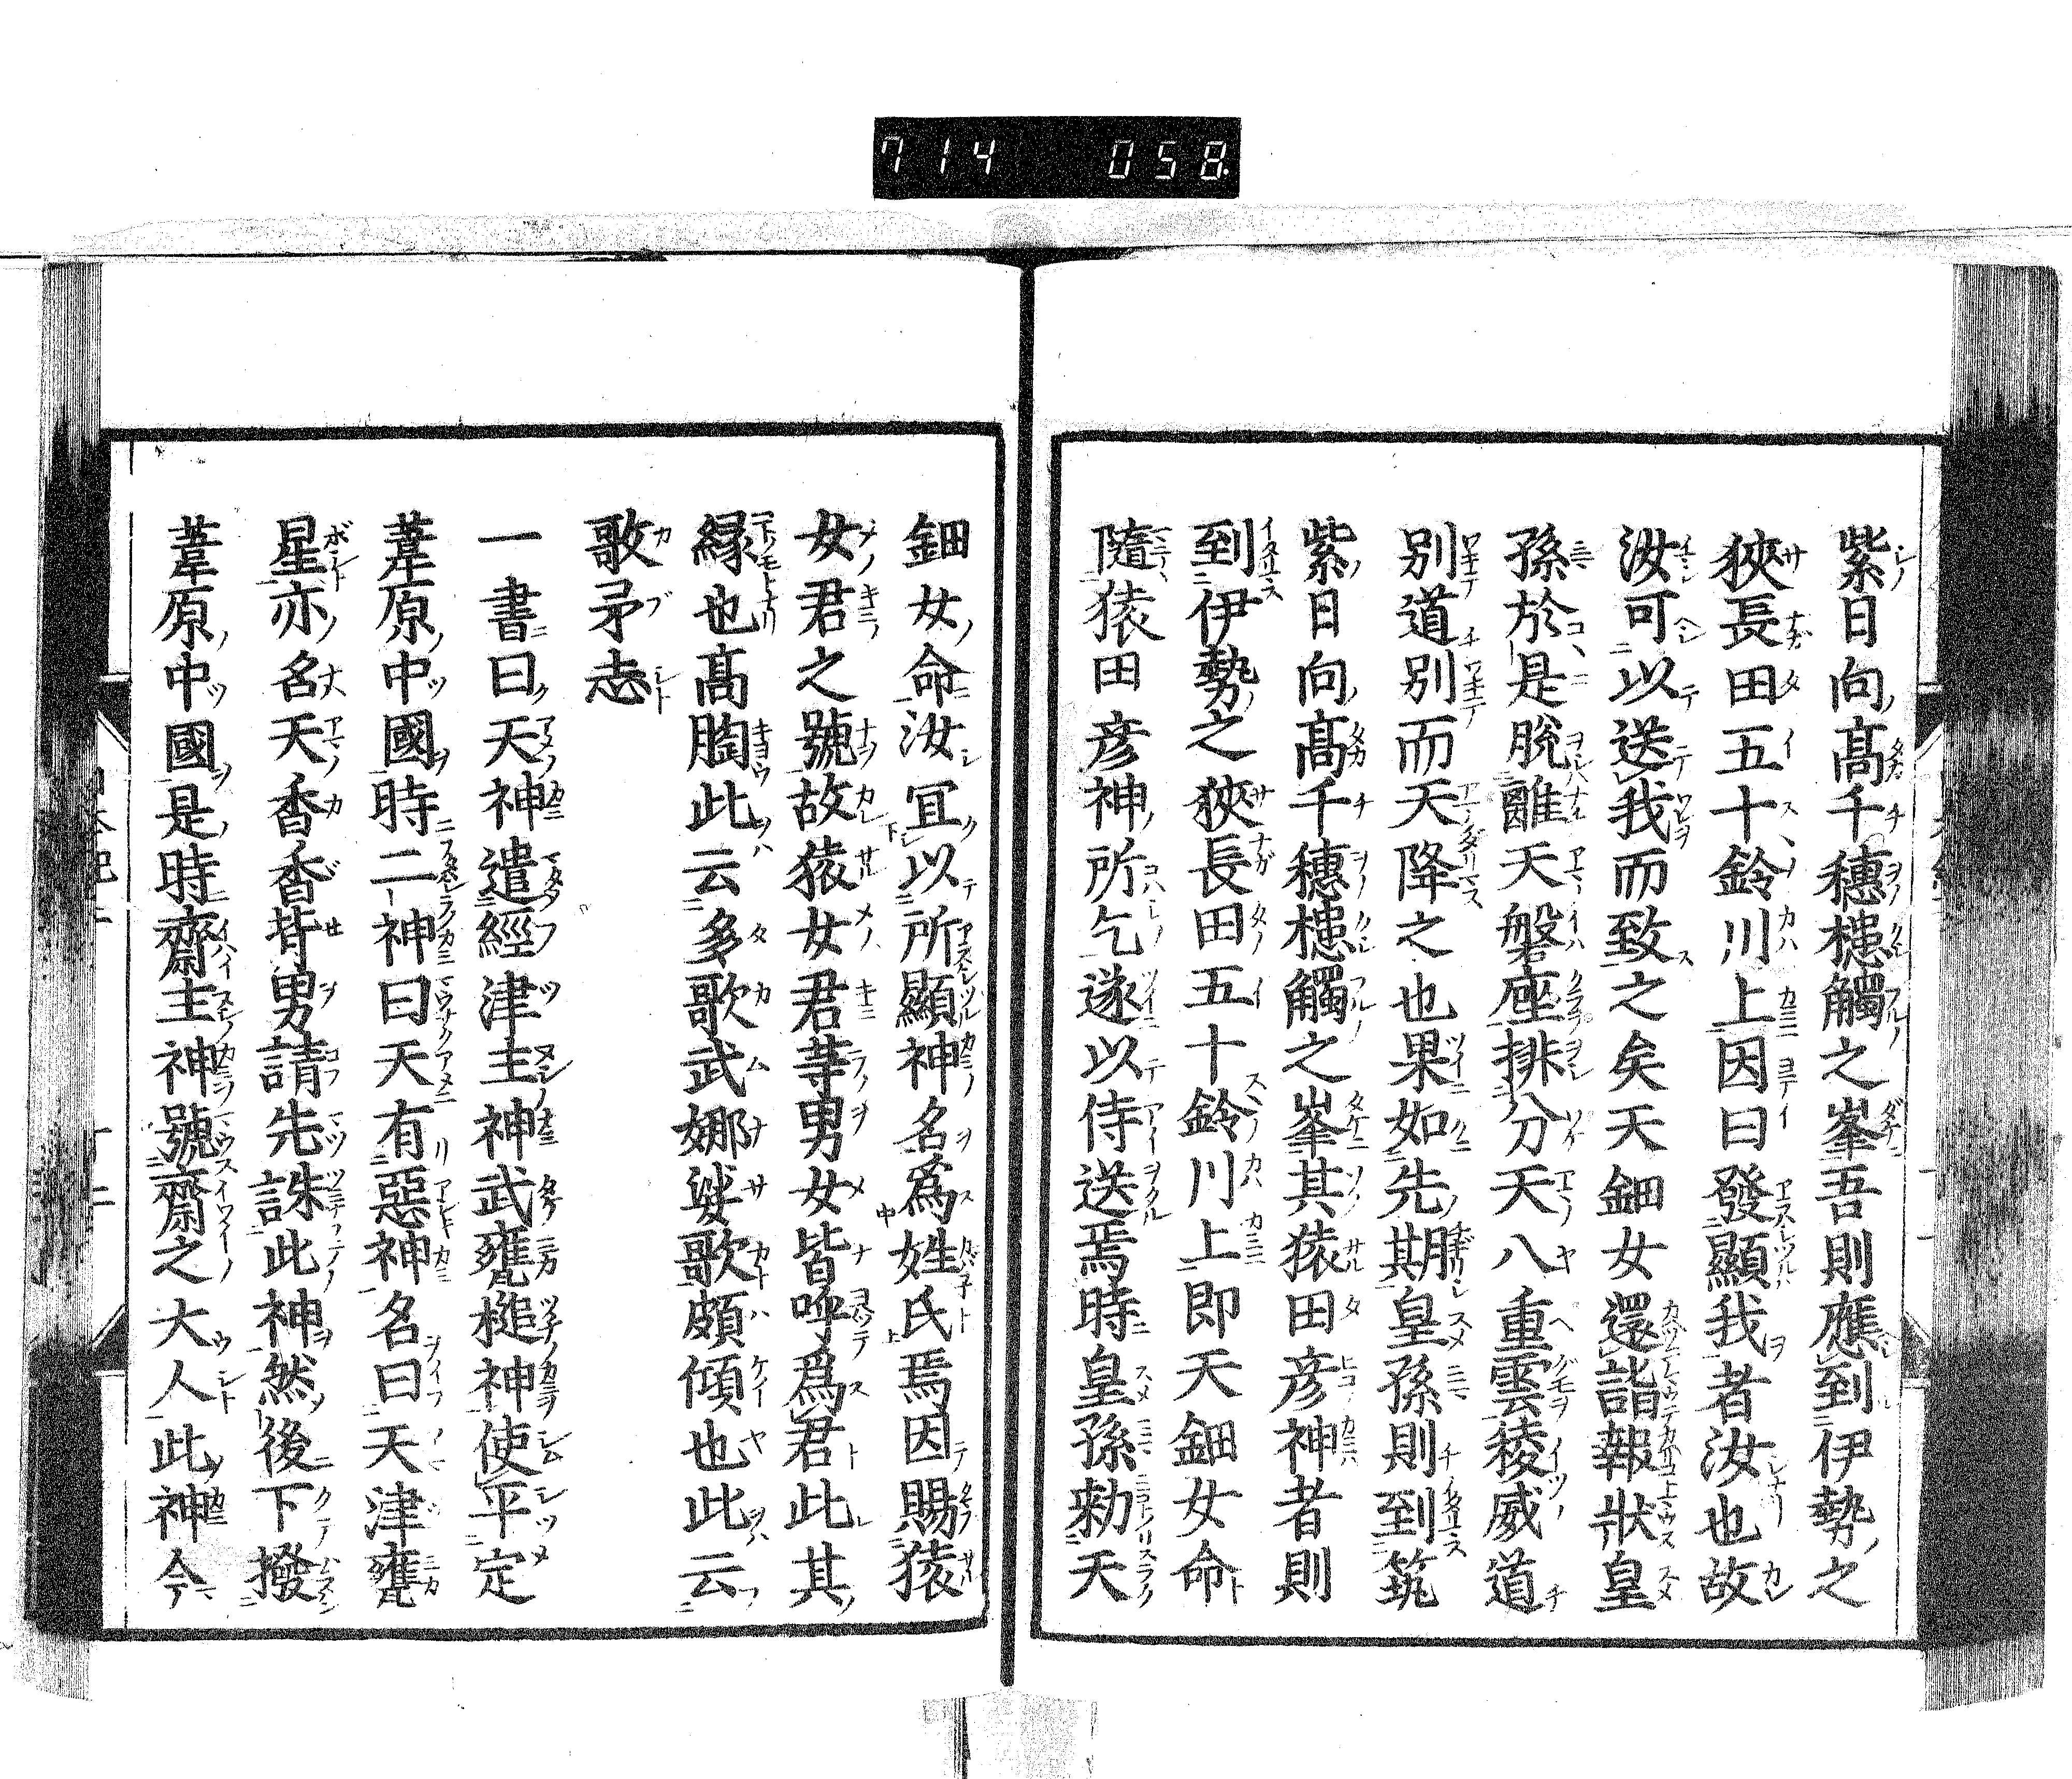 714 058
紫日向髙千穗槵觸之峯吾則應到伊勢之
狹長田五十鈴川上因曰發顯我者汝也故
汝可以送我而致之矣天鈿女還詣報狀皇
孫於是脫離天磐座排分天八重雲稜威道
别道别而天降之也果如先期皇孫則到筑
紫日向髙千穗槵觸之峯其猿田彦神者則
到伊勢之狹長田五十鈴川上即天鈿女命
隨猿田彦神所乞遂以侍送焉時皇孫勑天
鈿女命汝冝以所顯神名爲姓氏焉因賜猿
女君之號故猿女君等男女皆呼爲君此其
縁也髙胸此云多歌武娜娑歌頗傾也此云
歌矛志
一書曰天神遣經津主神武甕槌神使平定
葦原中國時二神曰天有惡神名曰天津甕
星亦名天香香背男請先誅此神然後下撥
葦原中國是時齋主神號齋之大人此神今